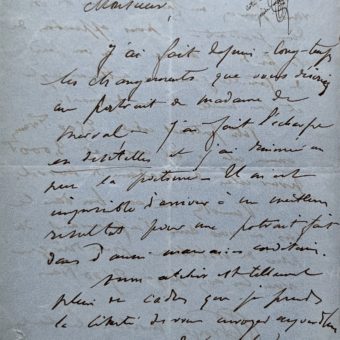 Monsieur
J'ai fait depuis long-temps
les changements que vous désiriez
au portrait de madame de
J'ai fait l'echarpe
en dentelles et j'ai diminué
sur la poitrine. Il m'est
impossible d'arriver à un meilleur
resultat pour une portrait fait
dans d'aussi mauvaises conditions.
mon atelier est tellement
plein de cadres que je prends
la liberté de vous envoyer aujourd'hui